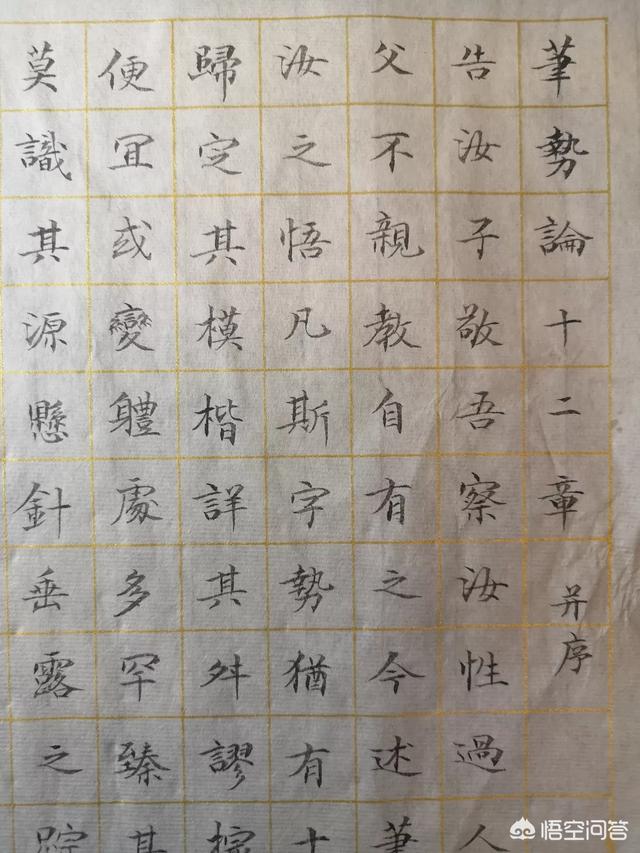 筆勢論十二章 并序
告汝子敬吾察汝性過人
父不親教自有之今述筆
汝之悟凡斯字勢猶有十
歸㝎其模楷詳其舛謬
便冝或變體處多罕臻其
莫識其源懸針垂露之踪
悟空问答